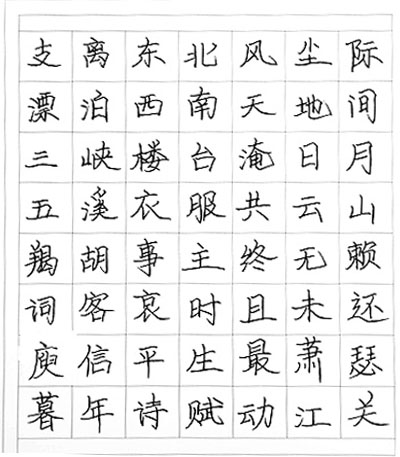 支离东北风尘际
漂泊西南天地间
三峡楼台淹日月
五溪衣服共云山
羯胡事主终无赖
词客哀时且未还
庾信平生最萧瑟
暮年诗赋动江关